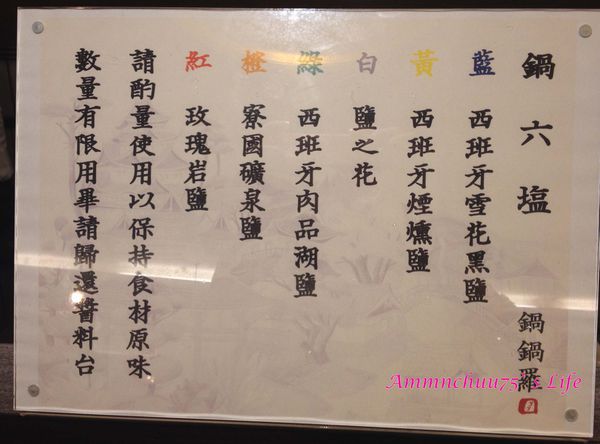 鍋六塩
鍋鍋羅
藍 西班牙雪花黑鹽
黃 西班牙煙燻鹽
白 鹽之花
綠 西班牙肉品湖鹽
橙 寮國礦泉鹽
紅 玫瑰岩鹽
請酌量使用以保持食材原味
數量有限用畢請歸還醬料台
Ammnchuu75's Life